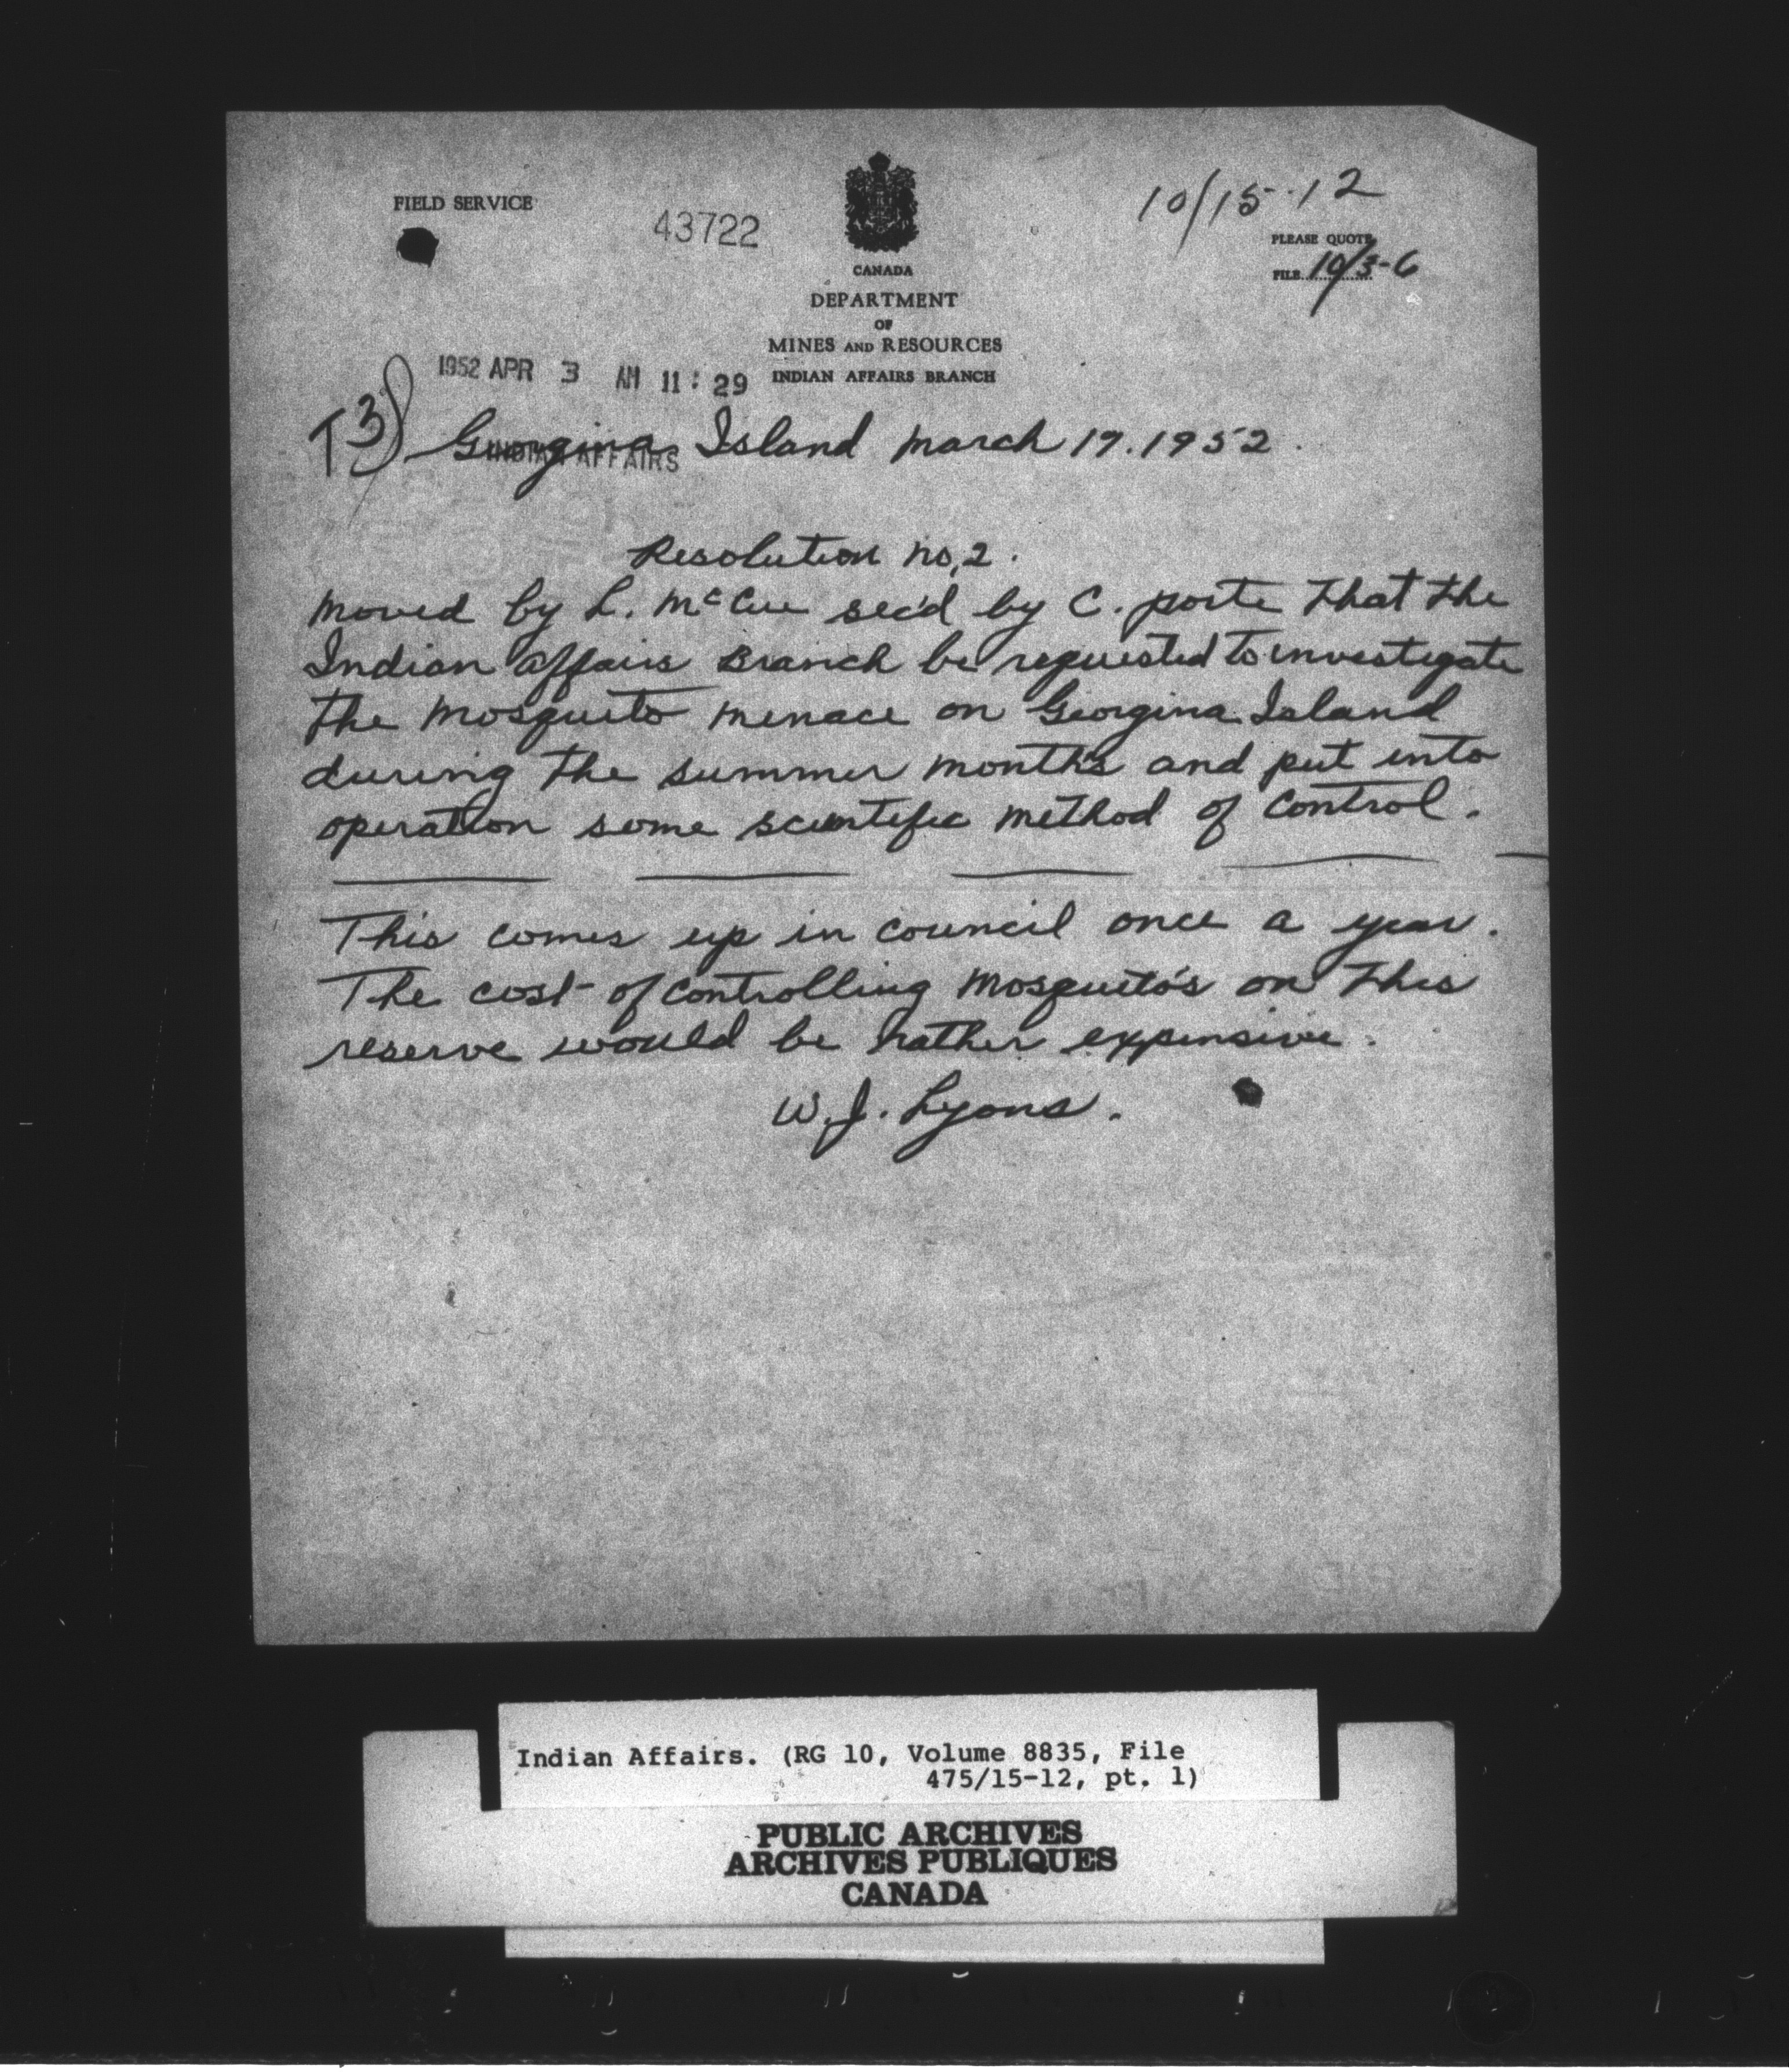 FIELD SERVICE
43722
10/15-12
PLEASE QUOTE
FILE 10/3-6
CANADA
DEPARTMENT
OF
MINES AND RESOURCES
INDIAN AFFAIRS BRANCH
1952 APR 3 AM 11:29
INDIAN AFFAIRS
T3
Georgina Island March 17. 1952.
Resolution no, 2.
Moved by L. McCue sec'd by C. porte That the
Indian Affairs Branch be requested to investigate
the Mosquito menace on Georgina Island
during the summer months and put into
operation some scientific method of control.
This comes up in council once a year.
The cost of controlling Mosquito's on this
reserve would be rather expensive.
W. J. Lyons.
Indian Affairs. (RG 10, Volume 8835, File
475/15-12, pt. 1)
PUBLIC ARCHIVES
ARCHIVES PUBLIQUES
CANADA